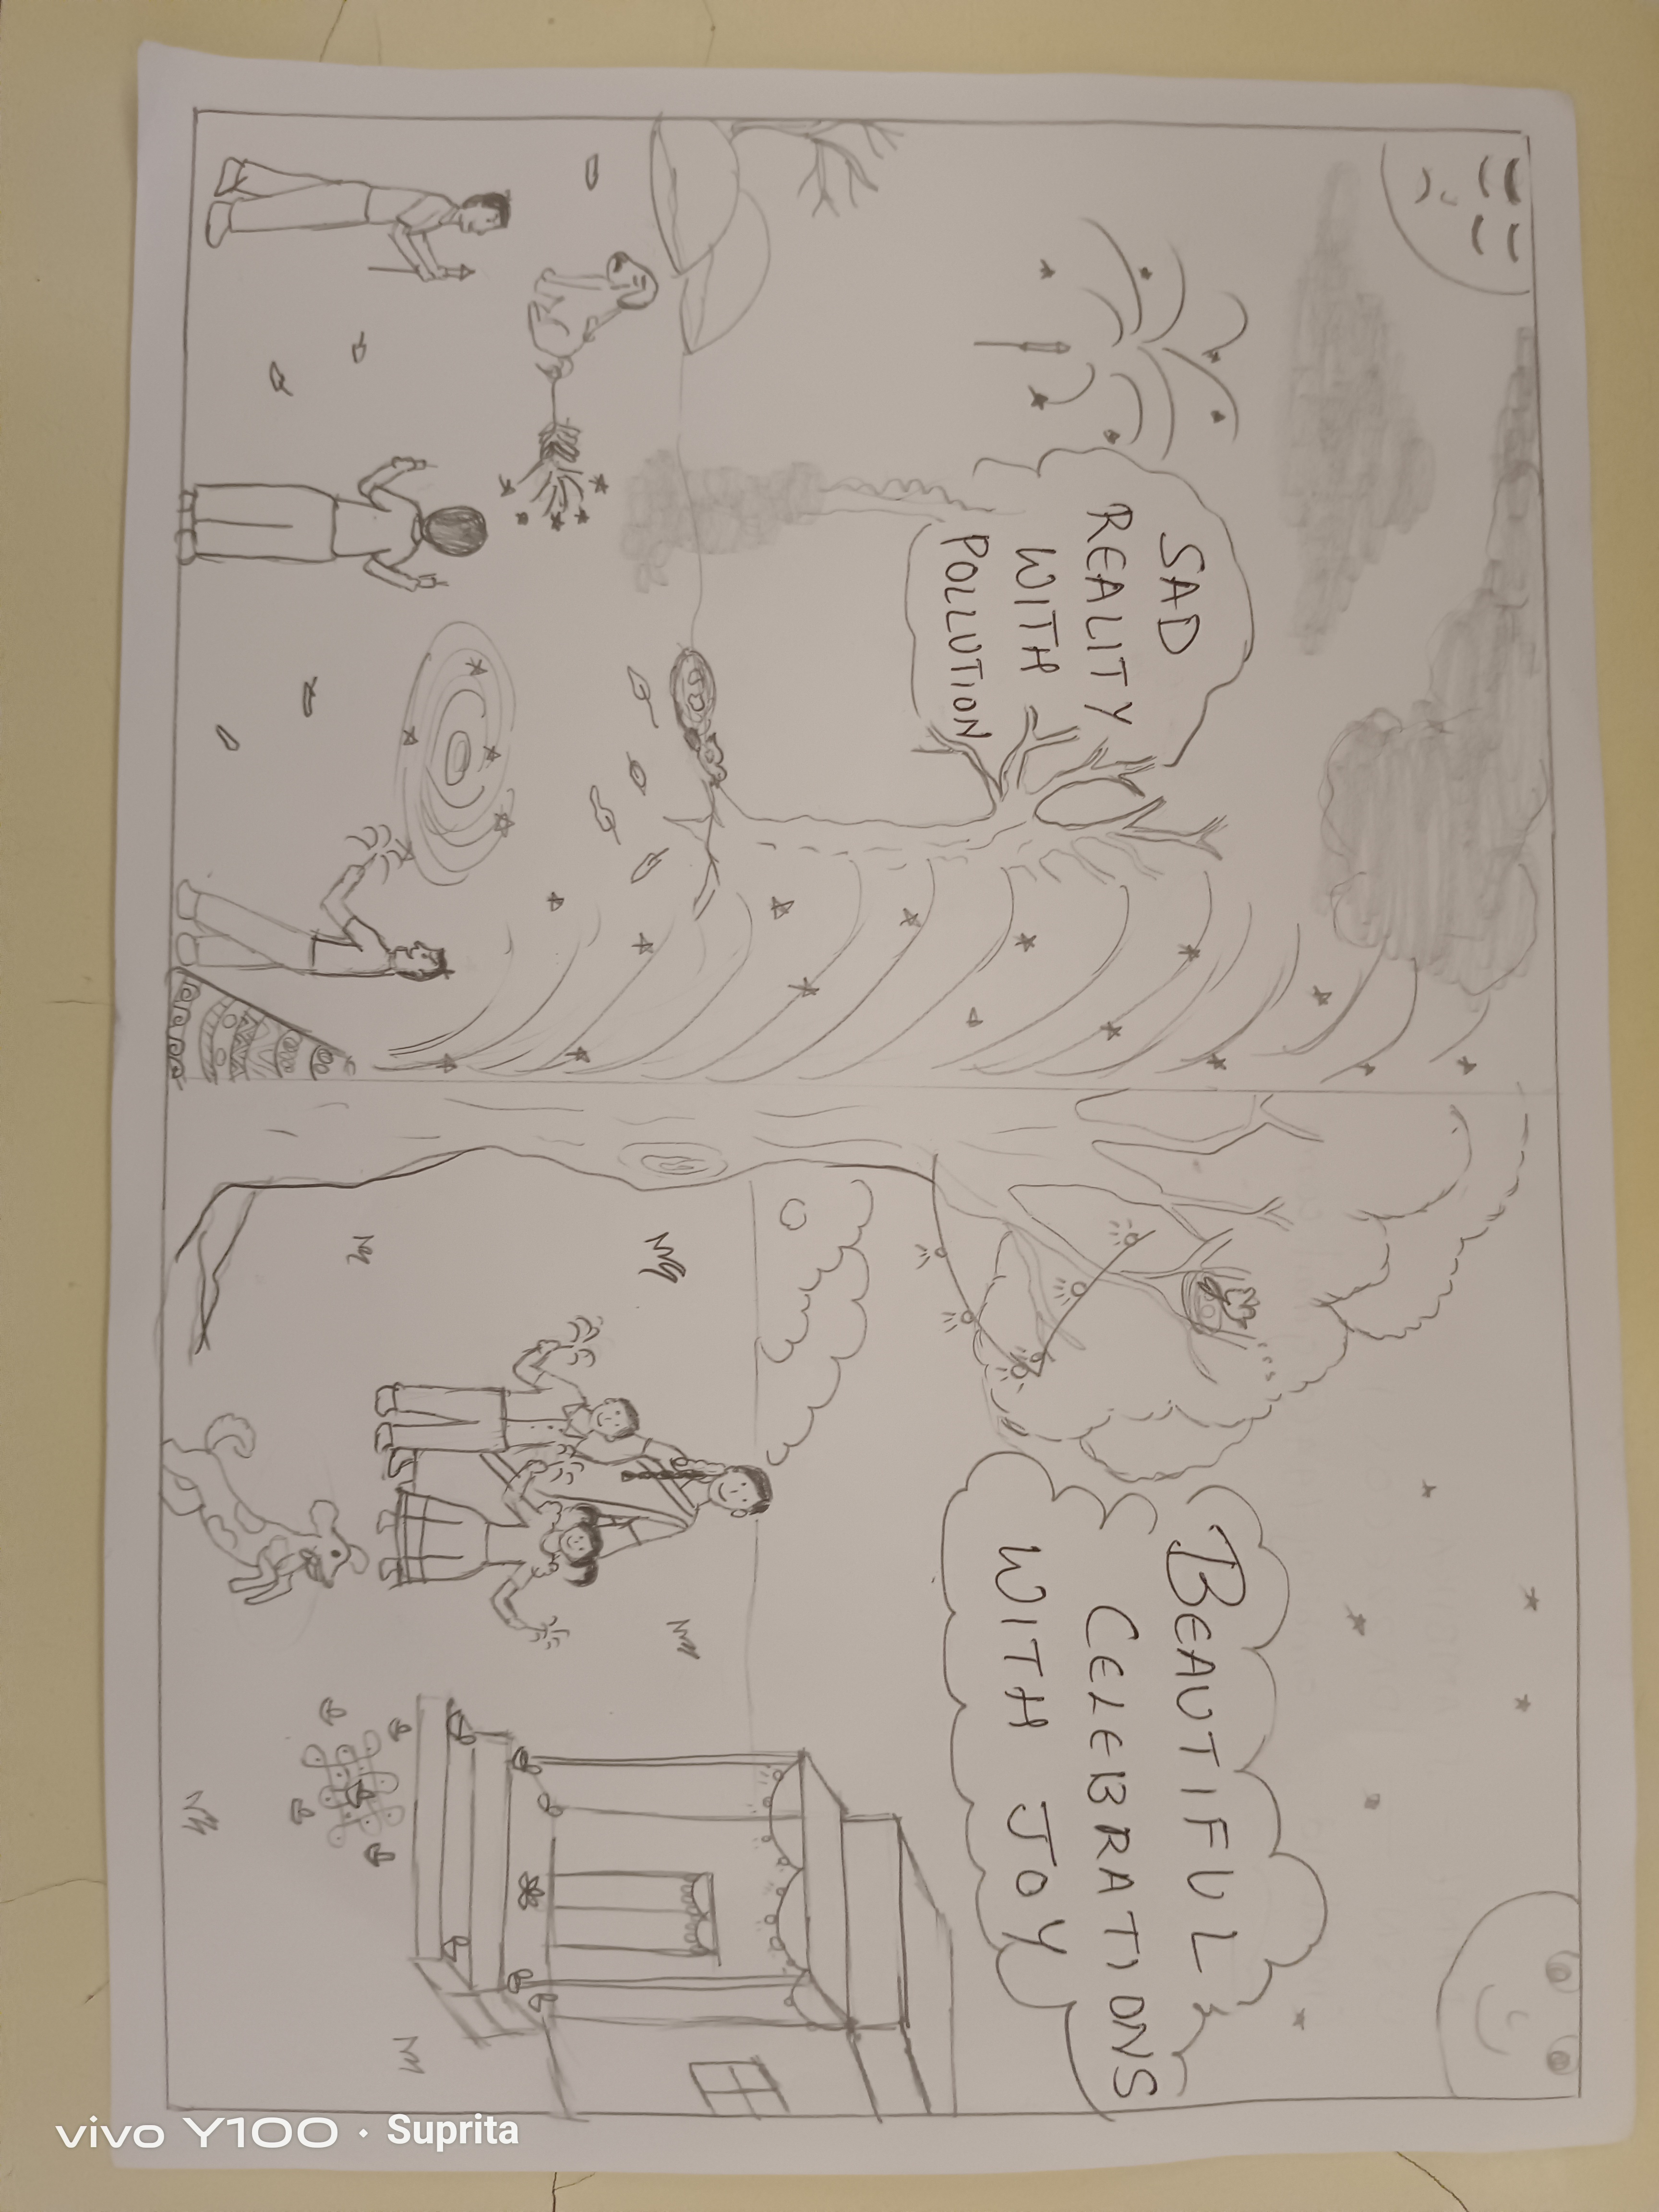 SAD
REALITY
WITH
POLLUTION
BEAUTIFUL
CELEBRATIONS
WITH JOY
vivo Y100 · Suprita